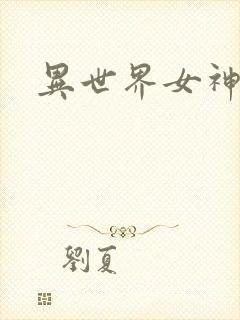 異世界女神
劉夏